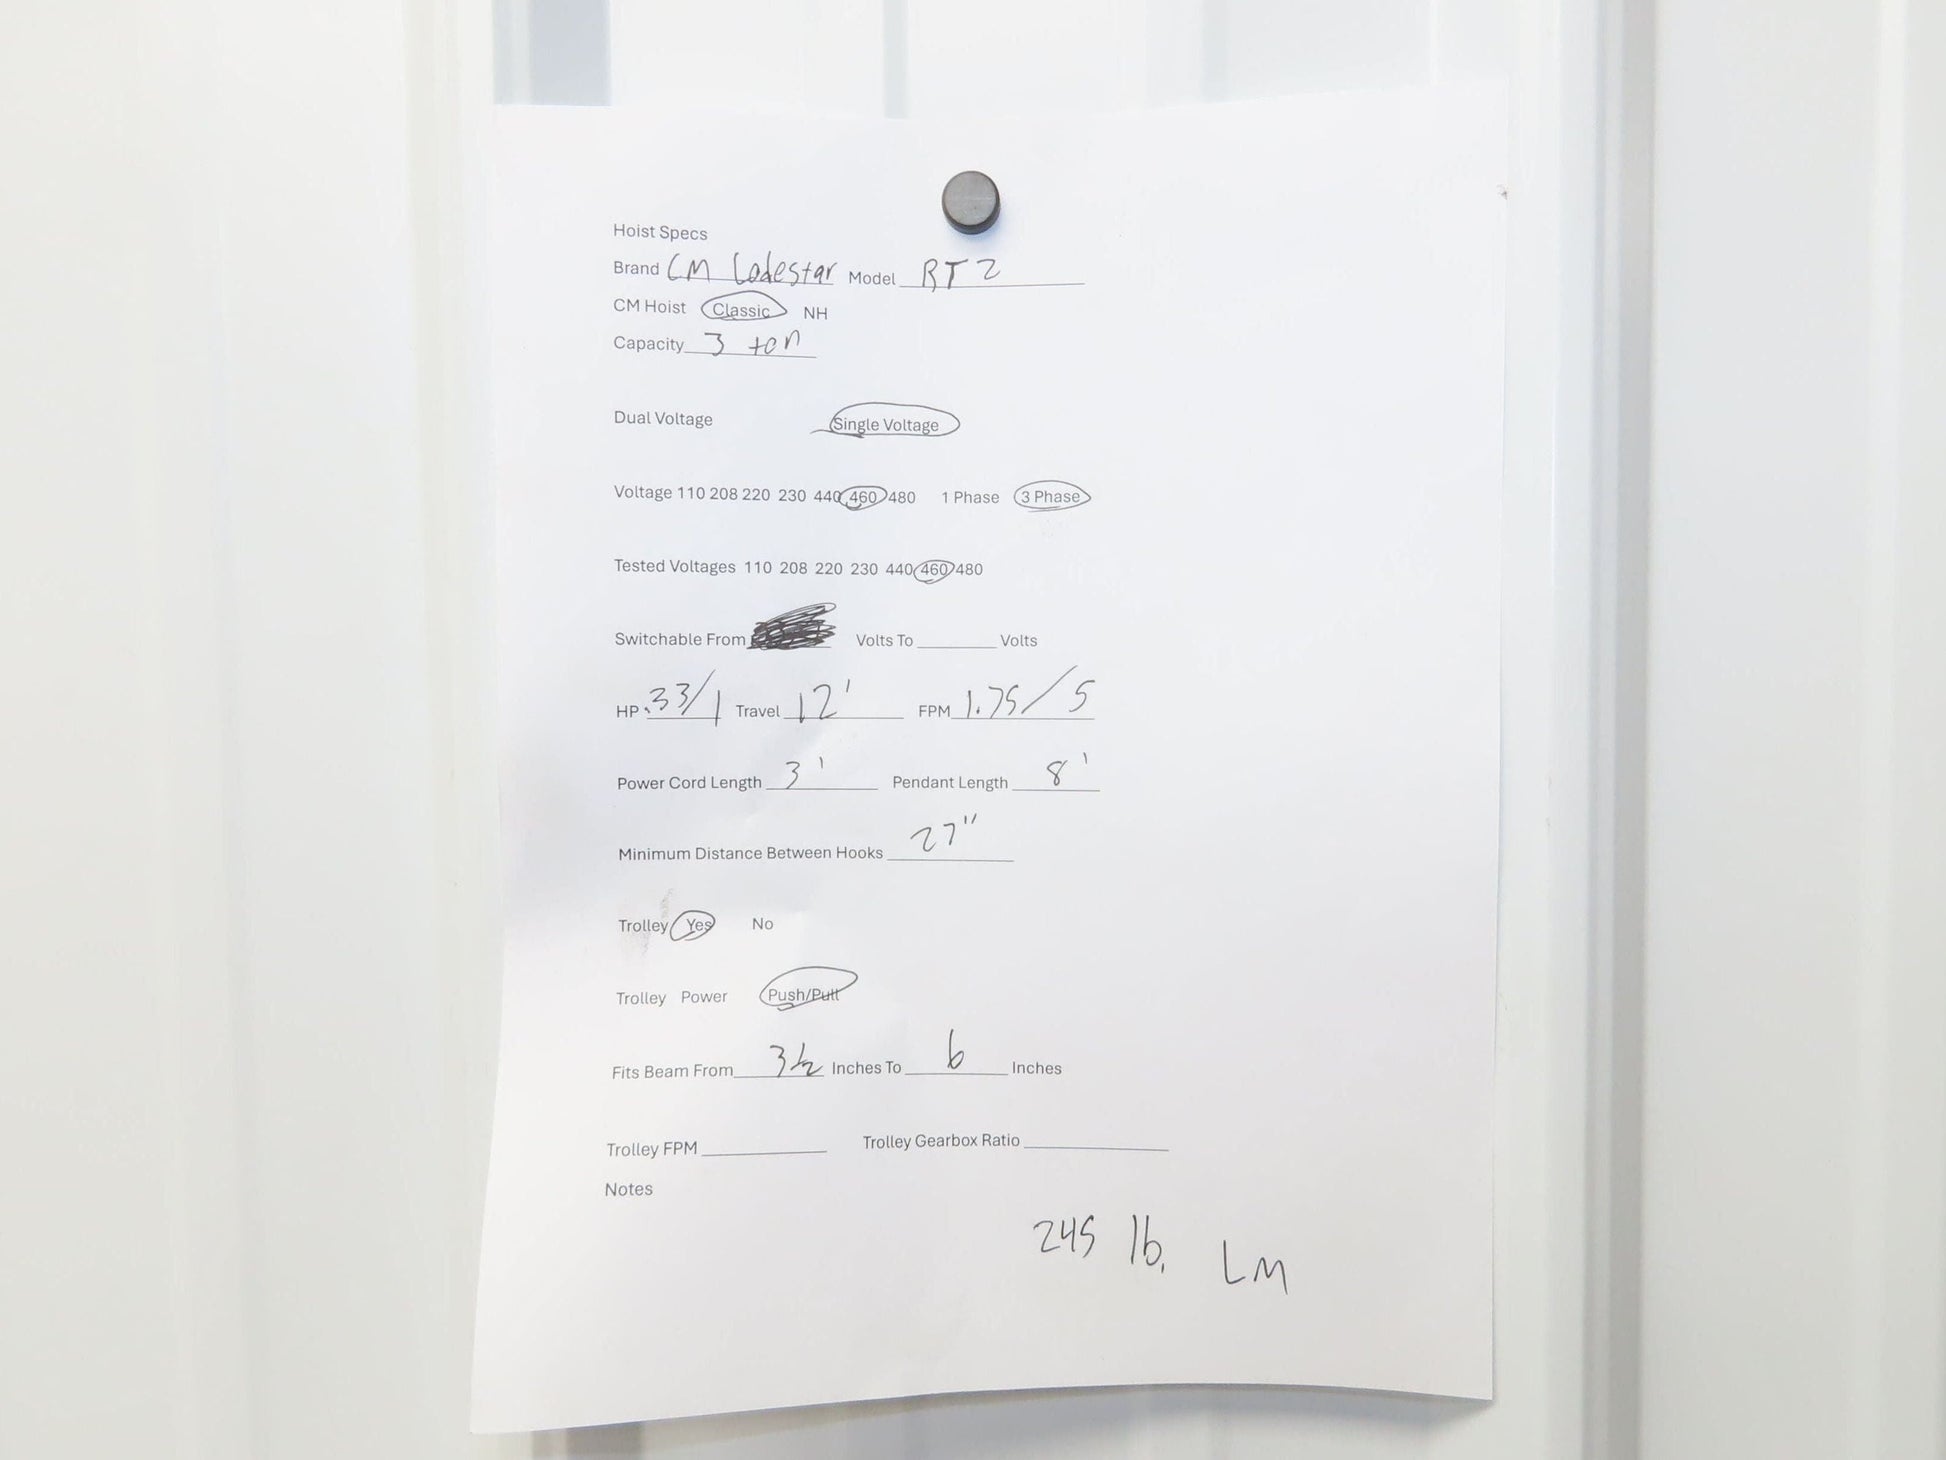 Hoist Specs
Brand CM Lodestar Model RT2
CM Hoist Classic NH
Capacity 3 ton
Dual Voltage Single Voltage
Voltage 110 208 220 230 440 460 480 1 Phase 3 Phase
Tested Voltages 110 208 220 230 440 460 480
Switchable From Volts To Volts
HP .33/1 Travel 12' FPM 1.75/5
Power Cord Length 3' Pendant Length 8'
Minimum Distance Between Hooks 27"
Trolley Yes No
Trolley Power Push/Pull
Fits Beam From 3½ Inches To 6 Inches
Trolley FPM Trolley Gearbox Ratio
Notes
245 lb. LM